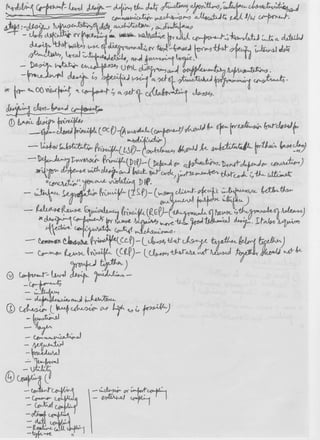 Modeling Component-level design - defines the data structures, algorithms, interface characteristics and
communication mechanisms allocated to each s/w component.
steps :- design representations of data, architecture, & interfaces
- class definition or processing narrative for each component is translated into a detailed
design that makes use of diagrammatic or text-based forms that specify internal data
structures, local interface details, and processing logic.
- Design notation encompasses UML diagrams and supplementary representations.
- procedural design is specified using a set of structured programming constructs.
* from a OO viewpoint a component is a set of collaborating classes.
designing class-based components
① basic design principles
- open-closed principle (OCP) - (A module [component] should be open for extension but closed for
modification)
- Liskov Substitution Principle (LSP) - (subclasses should be substitutable for their base class)
- Dependency Inversion Principle (DIP) - (Depend on abstractions. Do not depend on concretions)
* if you dispense with design and hack out code, just remember that code is the ultimate
"concretion". you're violating DIP.
- interface Segregation Principle (ISP) - (many client-specific interfaces are better than
one general purpose interface)
- Release Reuse Equivalency Principle (REP) - (the granule of reuse is the granule of release)
* designing components for reuse requires more than good technical design. It also requires
effective configuration control mechanisms.
- Common Closure Principle (CCP) - (classes that change together belong together)
- Common Reuse Principle (CRP) - (classes that are not reused together should not be
grouped together)
② Component-level design guidelines -
- Components
- interfaces
- dependencies and inheritance
③ Cohesion (keep cohesion as high as is possible)
- functional
- layer
- communicational
- sequential
- procedural
- Temporal
- utility
④ Coupling (
- content coupling
- common coupling
- Control coupling
- stamp coupling
- data coupling
- Routine call coupling
- type use "
- inclusion or import coupling
- external coupling